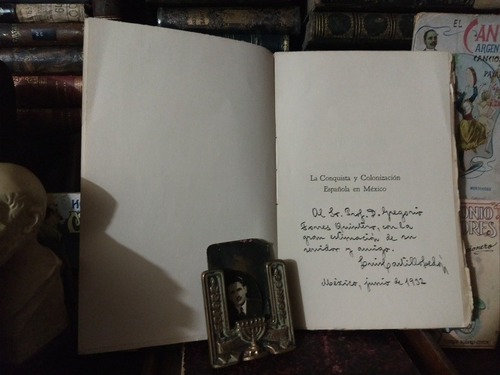 La Conquista y Colonización
Española en México
Al Sr. Prof. D. Gregorio
Torres Quintero, con la
gran estimación de su
servidor y amigo.
Luis Castillo Ledón
México, junio de 1932
EL
CAN
ARGEN
CANCIO
PA
ONIO
RES